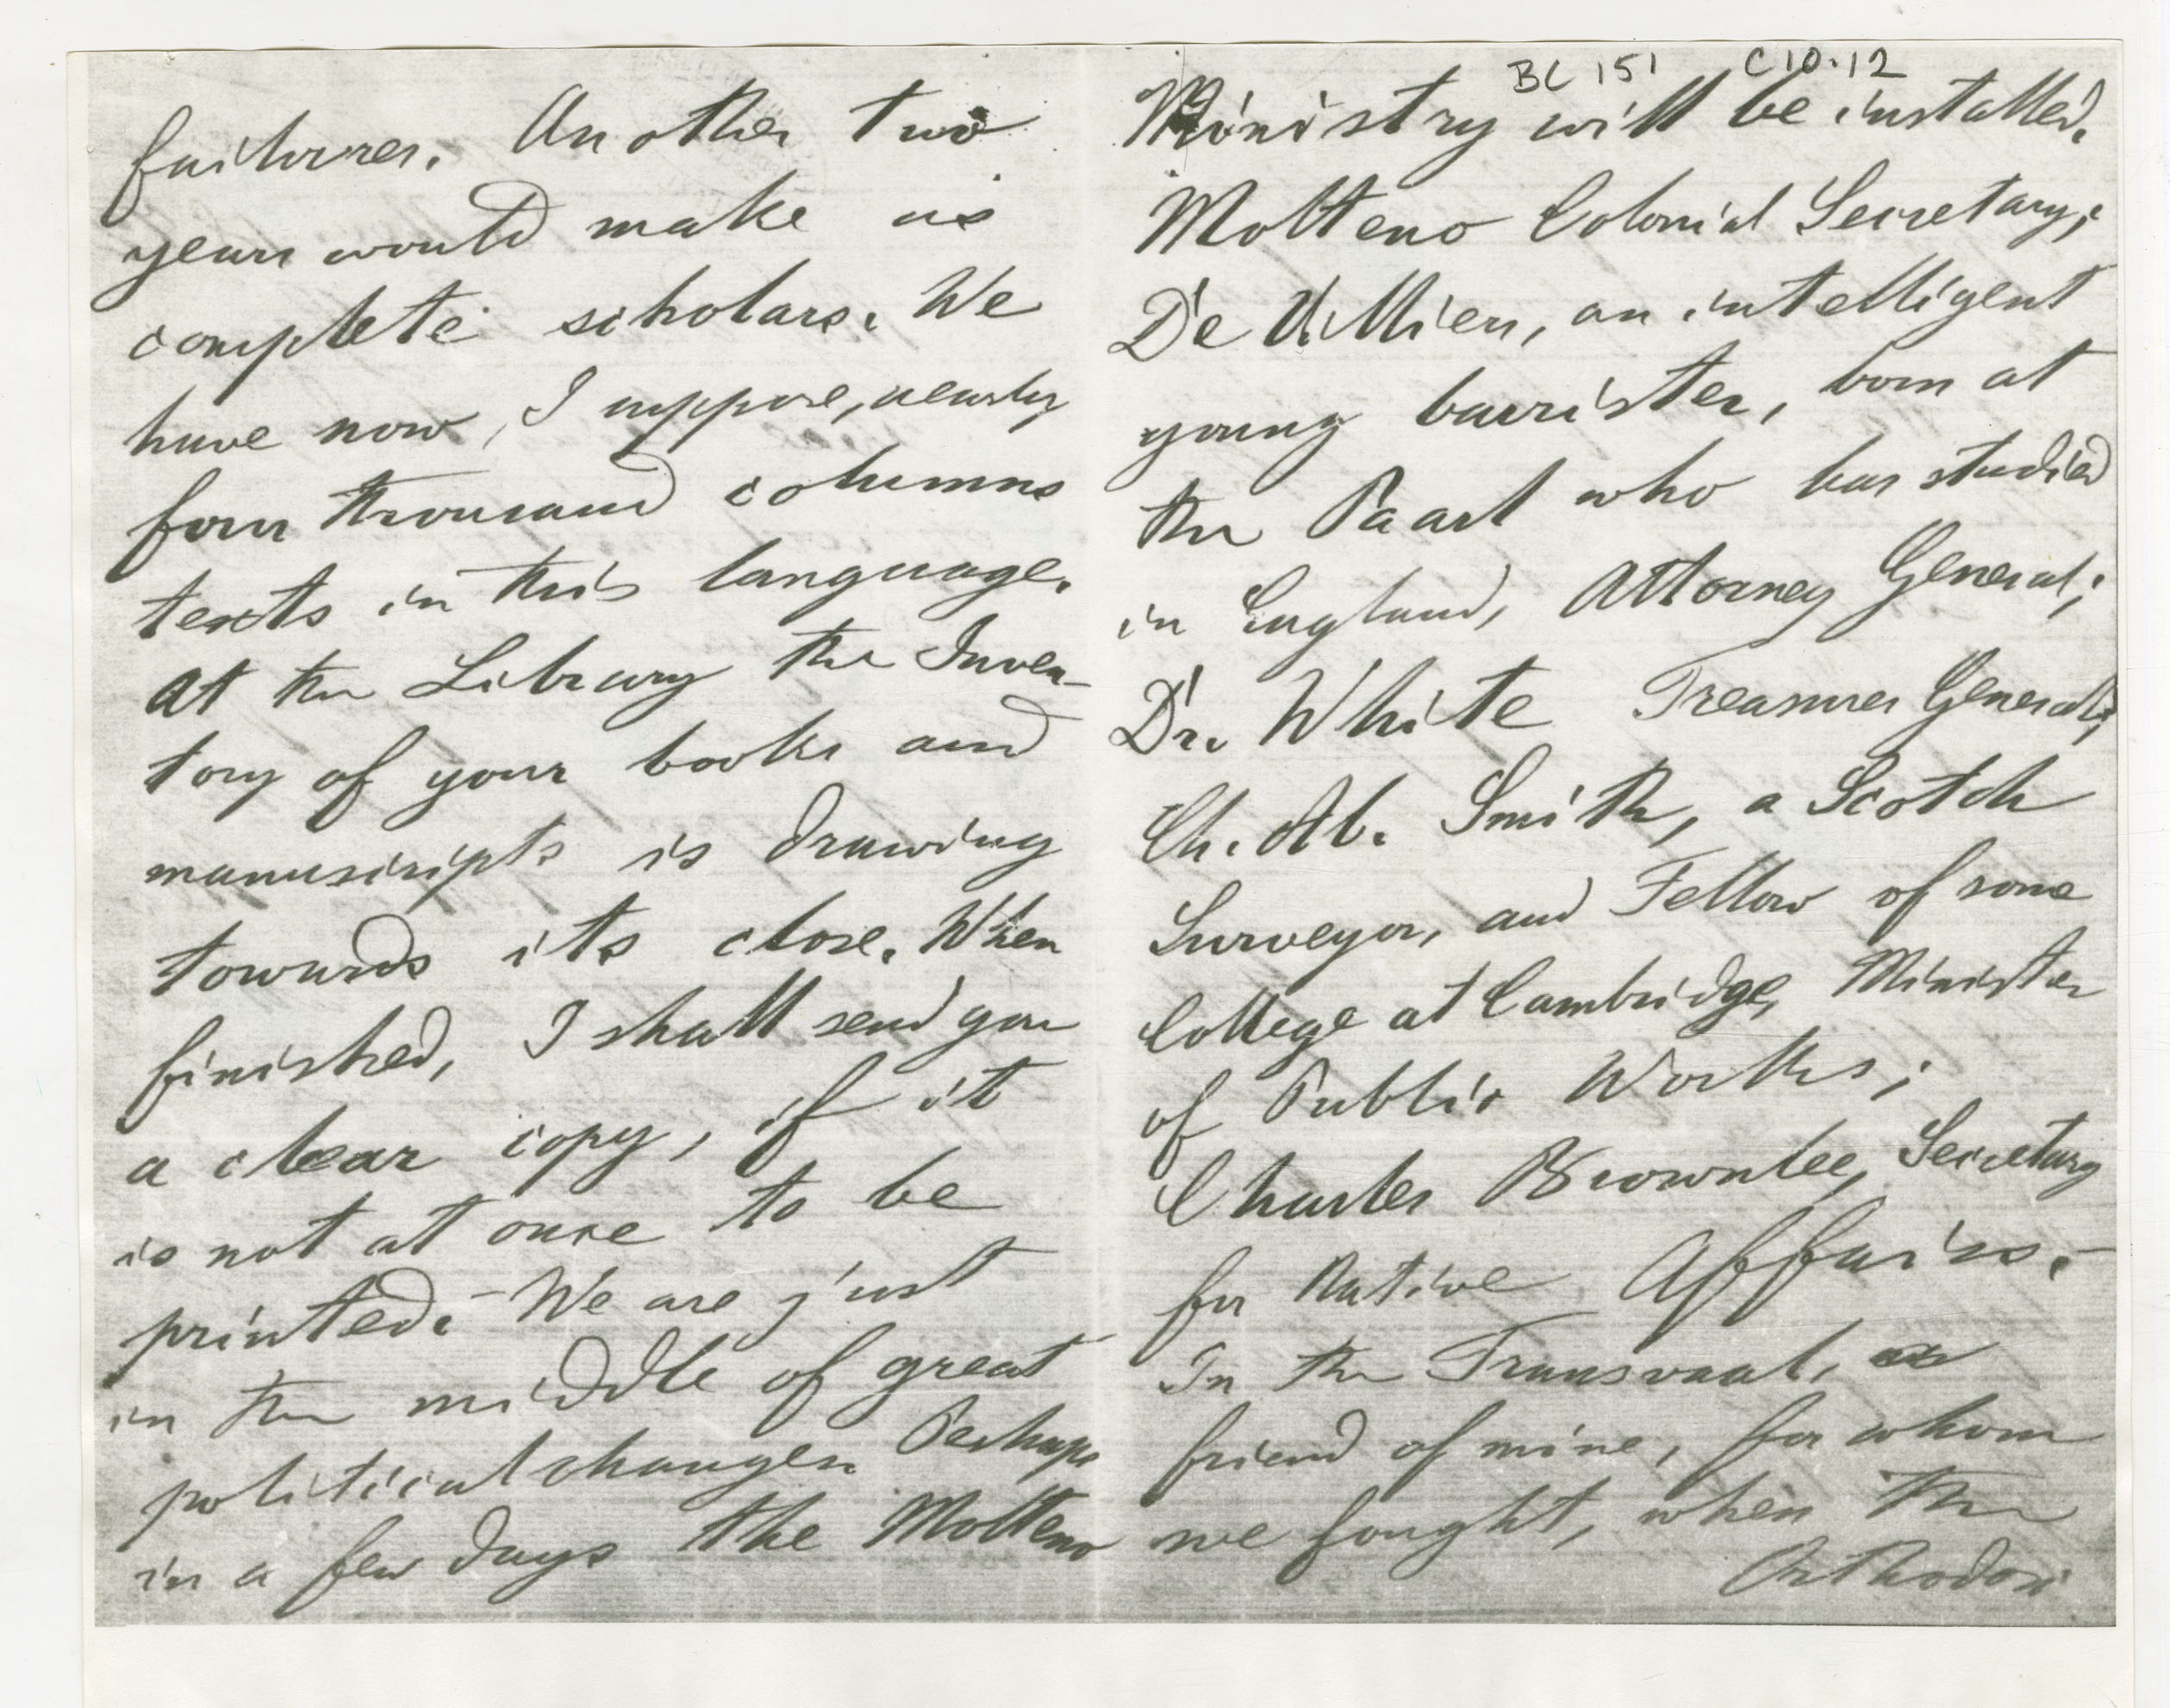 failures. Another two
years would make us
complete scholars. We
have now, I suppose, nearly
four thousand columns
texts in this language.
At the Library the Inven-
tory of your books and
manuscripts is drawing
towards its close. When
finished, I shall send you
a clear copy, if it
is not at once to be
printed. – We are just
in the middle of great
political changes. Perhaps
in a few days the Molteno
BC 151 C10.12
Ministry will be installed.
Molteno Colonial Secretary;
De Villiers, an intelligent
young barrister, born at
the Paarl who has studied
in England, Attorney General;
Dr. White Treasurer General;
Ch. Ab. Smith, a Scotch
Surveyor, and Fellow of some
College at Cambridge, Minister
of Public Works;
Charles Brownlee, Secretary
for Native Affairs. –
In the Transvaal,
friend of mine, for whom
we fought, when the
Orthodox